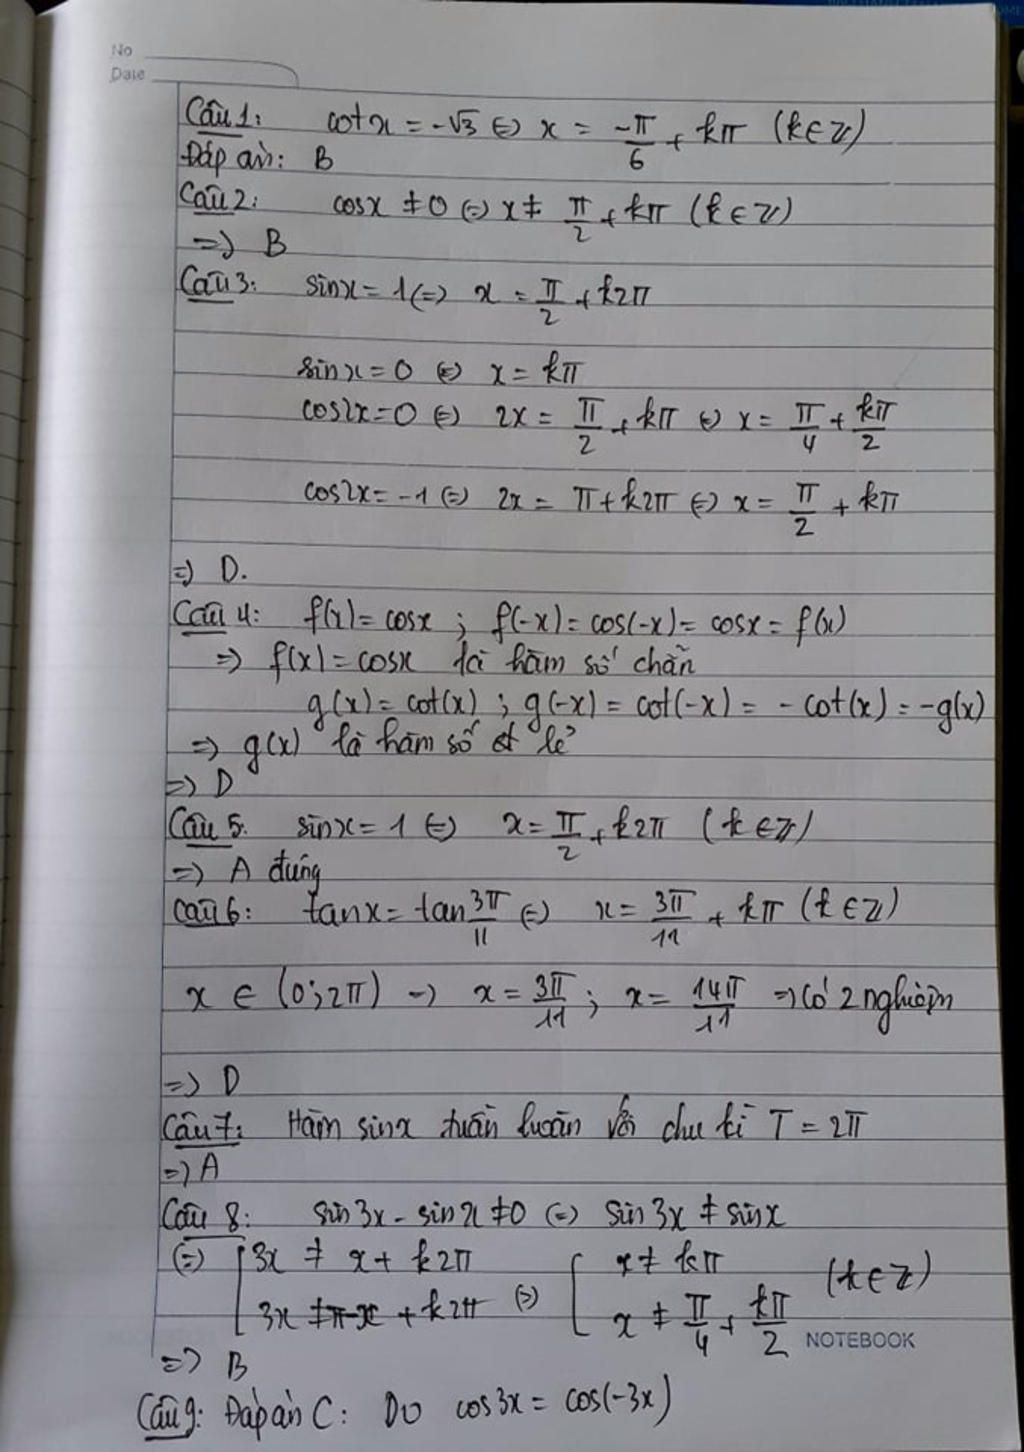 No
Date
Câu 1: cotx = -√3 ⇔ x = -π/6 + kπ (k∈Z)
Đáp án: B
Câu 2: cosx ≠ 0 ⇔ x ≠ π/2 + kπ (k∈Z)
=> B
Câu 3: sinx = 1 ⇔ x = π/2 + k2π
sinx = 0 ⇔ x = kπ
cos2x = 0 ⇔ 2x = π/2 + kπ ⇔ x = π/4 + kπ/2
cos2x = -1 ⇔ 2x = π + k2π ⇔ x = π/2 + kπ
=> D.
Câu 4: f(x) = cosx ; f(-x) = cos(-x) = cosx = f(x)
=> f(x) = cosx là hàm số chẵn
g(x) = cot(x) ; g(-x) = cot(-x) = -cot(x) = -g(x)
=> g(x) là hàm số lẻ
=> D
Câu 5. sinx = 1 ⇔ x = π/2 + k2π (k∈Z)
=> A đúng
Câu 6: tanx = tan 3π/11 ⇔ x = 3π/11 + kπ (k∈Z)
x ∈ (0; 2π) → x = 3π/11 ; x = 14π/11 => Có 2 nghiệm
=> D
Câu 7: Hàm sinx tuần hoàn với chu kì T = 2π
=> A
Câu 8: sin3x - sinx ≠ 0 ⇔ sin3x ≠ sinx
⇔ [ 3x ≠ x + k2π ⇔ [ x ≠ kπ (k∈Z)
3x ≠ π-x + k2π x ≠ π/4 + kπ/2
NOTEBOOK
=> B
Câu 9: Đáp án C: Do cos3x = cos(-3x)